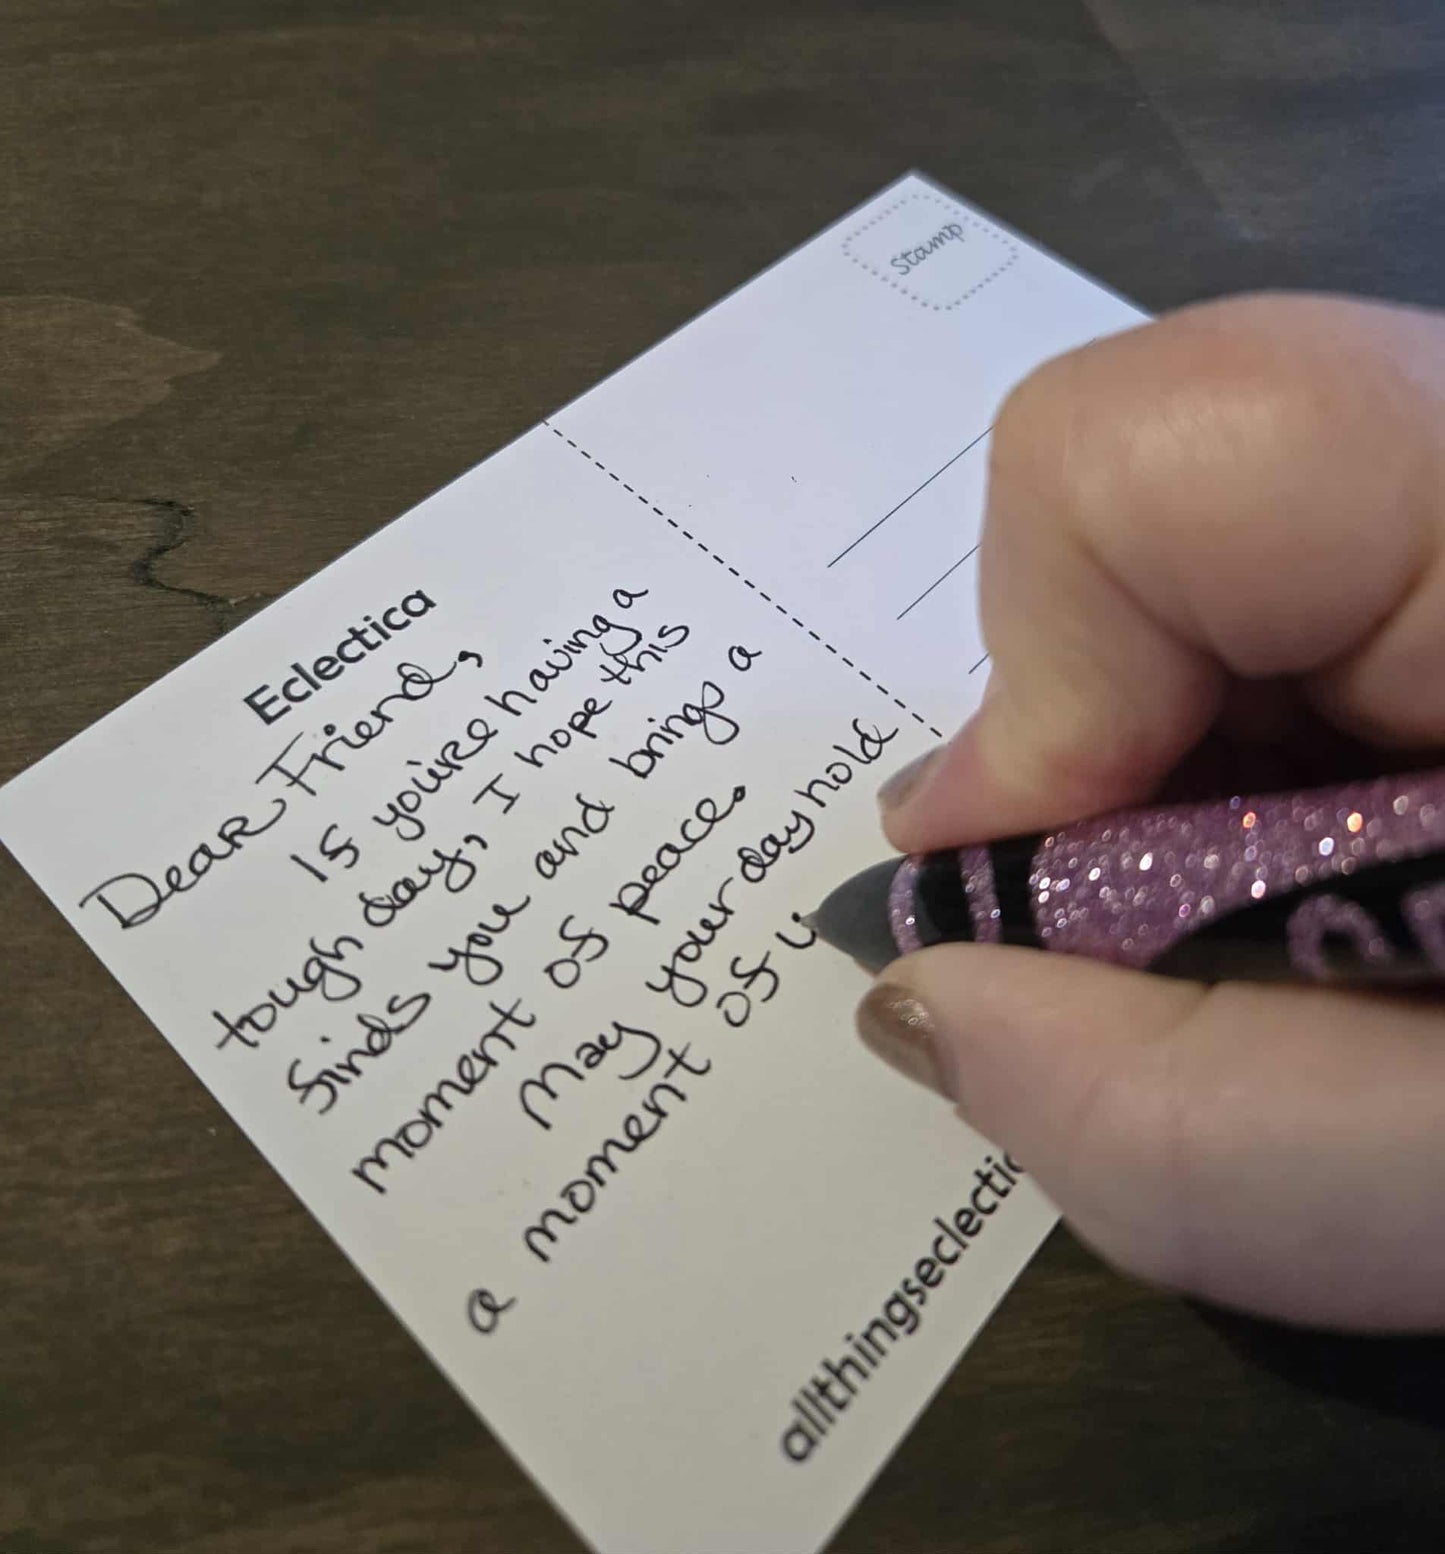 Stamp
Eclectica
Dear Friend,
If you're having a
tough day, I hope this
finds you and brings a
moment of peace.
May your day hold
a moment of
allthingseclectic